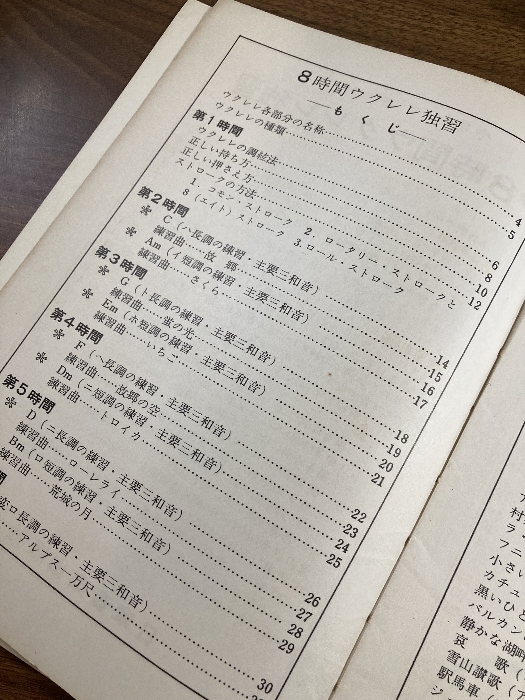 8時間ウクレレ独習
——もくじ——
ウクレレ各部分の名称……4
ウクレレの種類……5
第1時間
ウクレレの調絃法……6
正しい持ち方……8
正しい押さえ方……10
ストロークの方法……12
1. コモン・ストローク 2. ロータリー・ストロークと
8(エイト)ストローク 3. ロール・ストローク
第2時間
※ C(ハ長調の練習・主要三和音)……14
練習曲……故 郷……15
※ Am(イ短調の練習・主要三和音)……16
練習曲……さくら……17
第3時間
※ G(ト長調の練習・主要三和音)……18
練習曲……蛍の光……19
※ Em(ホ短調の練習・主要三和音)……20
練習曲……いちご……21
第4時間
※ F(ヘ長調の練習・主要三和音)……22
練習曲……故郷の空……23
※ Dm(ニ短調の練習・主要三和音)……24
練習曲……トロイカ……25
第5時間
※ D(ニ長調の練習・主要三和音)……26
練習曲……ローレライ……27
Bm(ロ短調の練習・主要三和音)……28
練習曲……荒城の月……29
間
変ロ長調の練習・主要三和音)……30
アルプス一万尺……
村
ラ・
フニ
小さい
カチュ
黒いひと
バルカン
静かな湖畔
哀 歌(
雪山讃歌(
駅馬車(